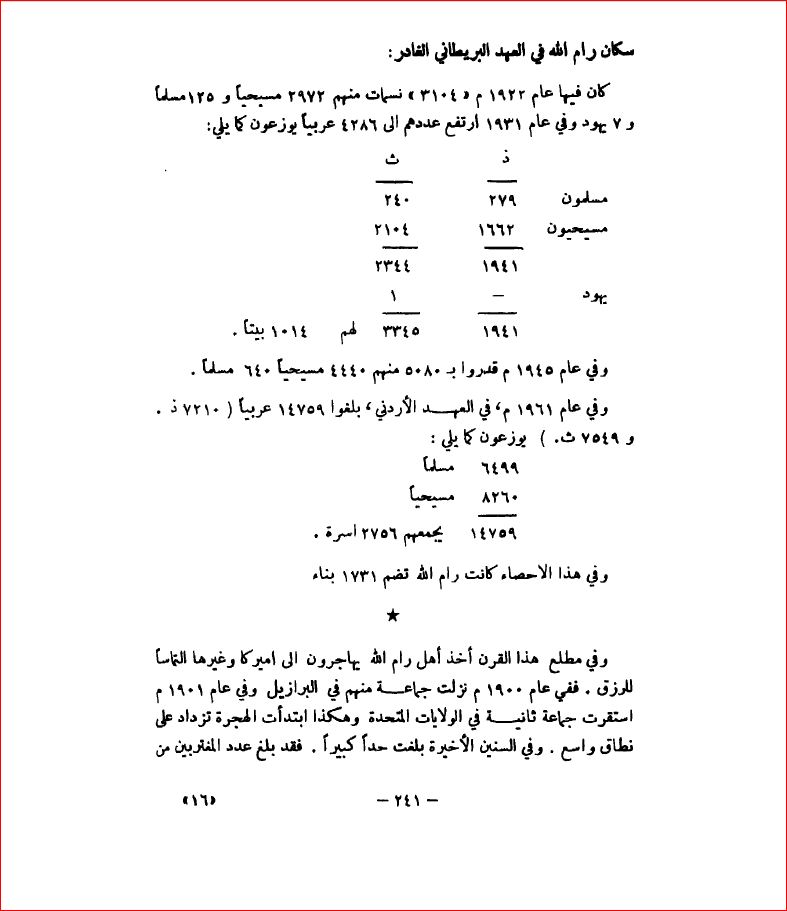 سكان رام الله في العهد البريطاني الغادر :
كان فيها عام ١٩٢٢ م «٣١٠٤» نسمات منهم ٢٩٧٢ مسيحياً و ١٢٥ مسلماً
و ٧ يهود وفي عام ١٩٣١ ارتفع عددهم الى ٤٢٨٦ عربياً يوزعون كما يلي:
ذ ث
مسلمون ٢٧٩ ٢٤٠
مسيحيون ١٦٦٢ ٢١٠٤
١٩٤١ ٢٣٤٤
يهود — ١
١٩٤١ ٣٣٤٥ لهم ١٠١٤ بيتاً .
وفي عام ١٩٤٥ م قدروا بـ ٥٠٨٠ منهم ٤٤٤٠ مسيحياً ٦٤٠ مسلماً .
وفي عام ١٩٦١ م، في العهد الأردني، بلغوا ١٤٧٥٩ عربياً ( ٧٢١٠ ذ .
و ٧٥٤٩ ث. ) يوزعون كما يلي :
٦٤٩٩ مسلماً
٨٢٦٠ مسيحياً
١٤٧٥٩ يجمعهم ٢٧٥٦ اسرة .
وفي هذا الاحصاء كانت رام الله تضم ١٧٣١ بناء
★
وفي مطلع هذا القرن أخذ أهل رام الله يهاجرون الى اميركا وغيرها التماساً
للرزق . ففي عام ١٩٠٠ م نزلت جماعة منهم في البرازيل وفي عام ١٩٠١ م
استقرت جماعة ثانية في الولايات المتحدة وهكذا ابتدأت الهجرة تزداد على
نطاق واسع . وفي السنين الأخيرة بلغت حداً كبيراً . فقد بلغ عدد المغتربين من
— ٢٤١ — «١٦»